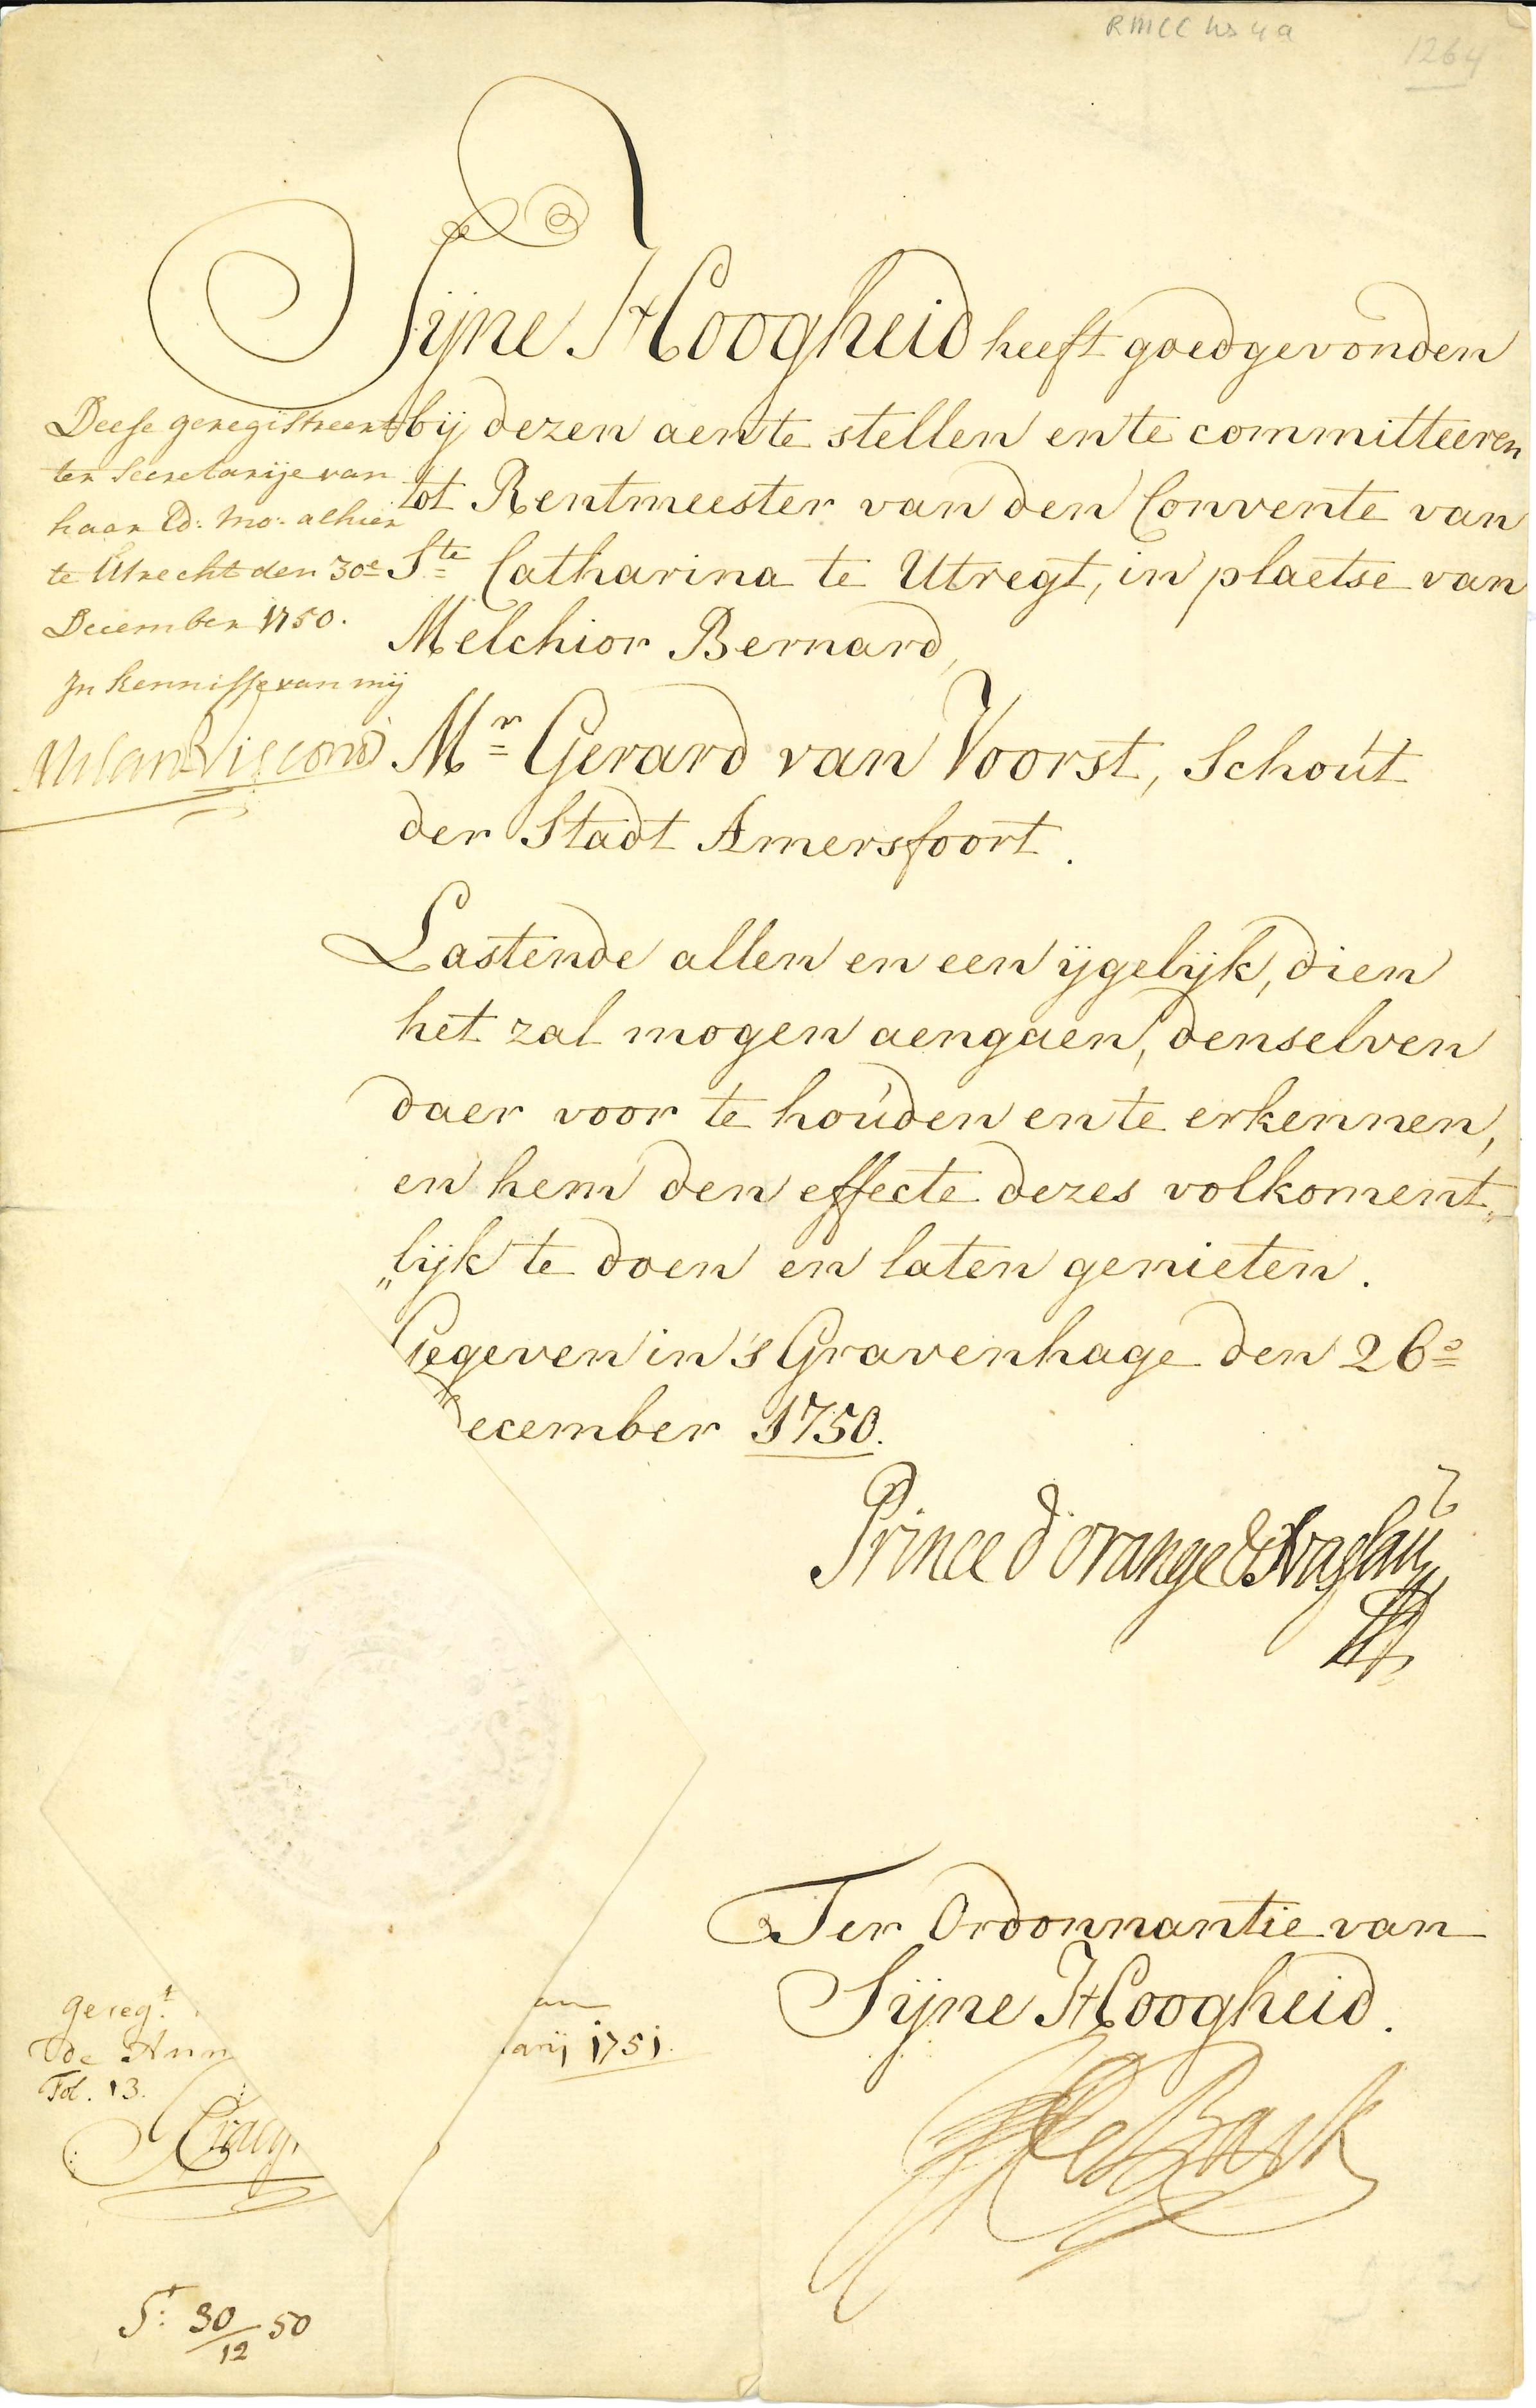 RMCC hs 4a
1264
Sijne Hoogheid heeft goedgevonden
bij dezen aen te stellen en te committeeren
tot Rentmeester van den Convente van
Ste Catharina te Utregt, in plaetse van
Melchior Bernard,
Mr Gerard van Voorst, Schout
der Stadt Amersfoort.
Deese geregistreert
ter Secretarije van
haar Ed: Mo: alhier
te Utrecht den 30e
December 1750.
In kennisse van mij
Milan Visconti
Lastende allen en een ijgelijk, dien
het zal mogen aengaen, denselven
daer voor te houden en te erkennen,
en hem den effecte dezes volkoment„
„lijk te doen en laten genieten.
Gegeven in 's Gravenhage den 26e
December 1750.
Prince d'orange & Nassau
Ter Ordonnantie van
Sijne Hoogheid.
J de Back
geregt
Fol. 13.
arij 1751.
St: 30/12 50